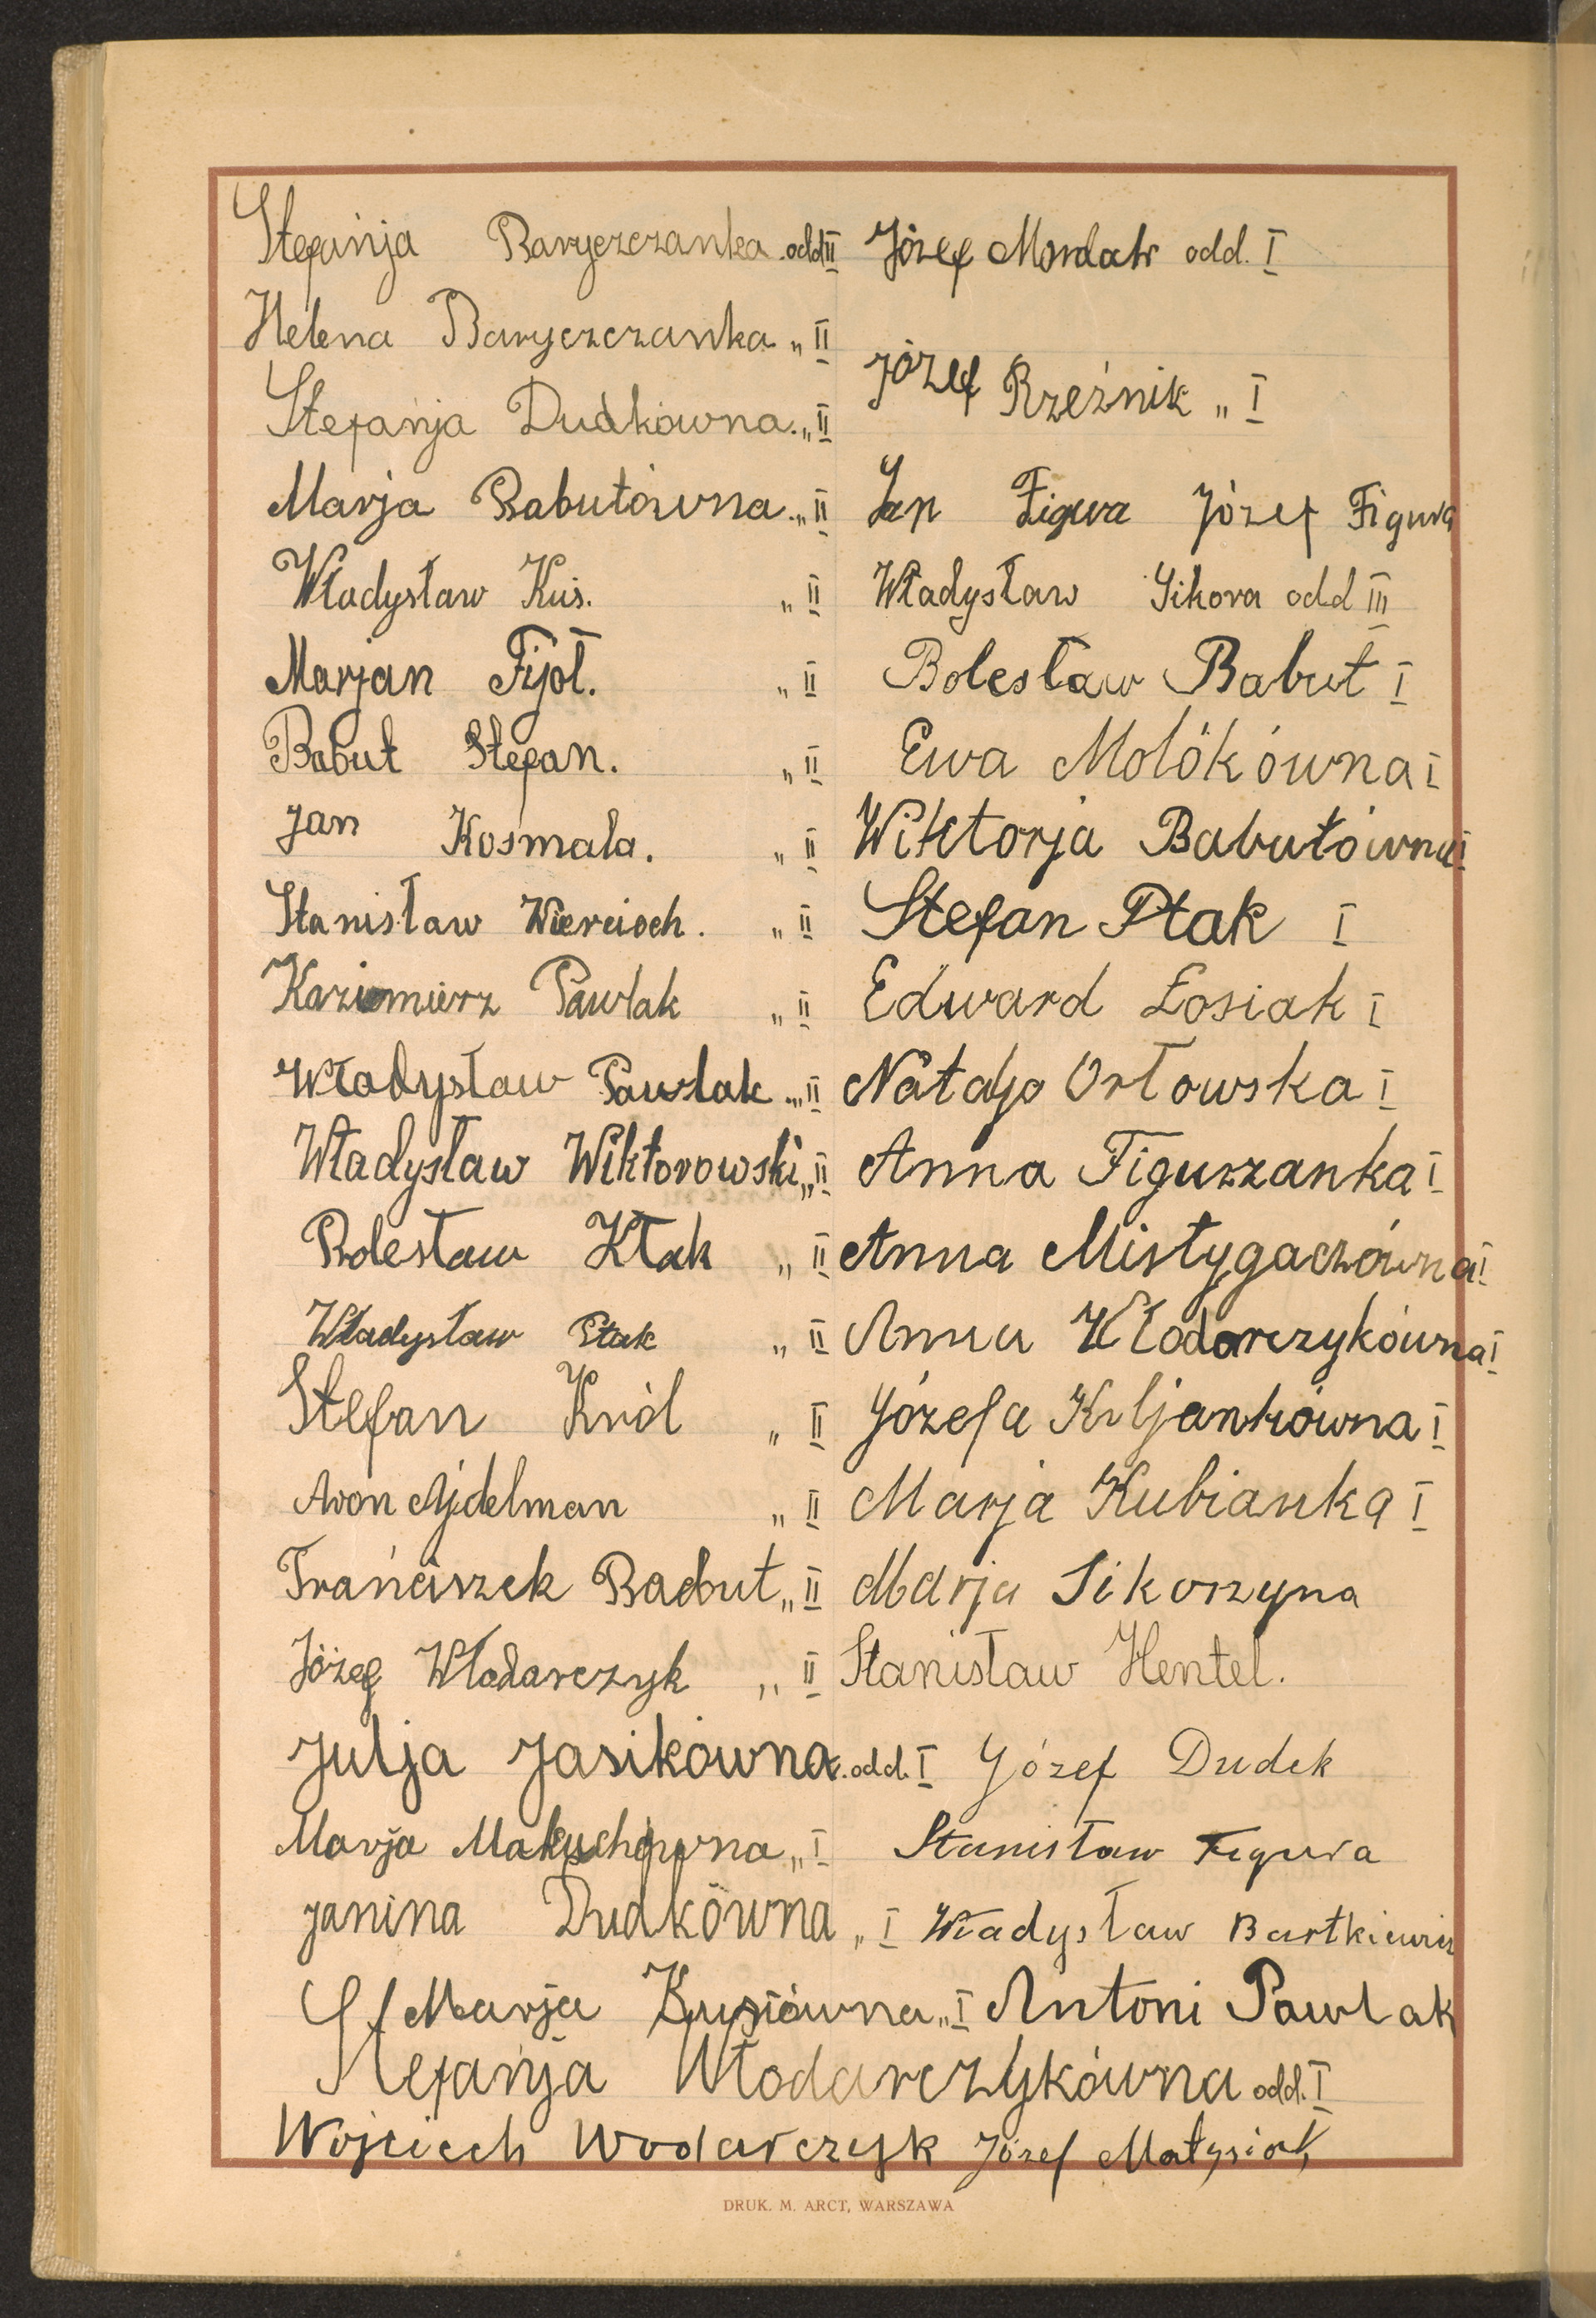 Stefańja Baryczczanka odd II
Helena Baryczczanka „ II
Stefańja Dudkówna „ II
Marja Babutówna „ II
Władysław Kuś. „ II
Marjan Fijoł. „ II
Babut Stefan. „ II
Jan Kosmala. „ II
Stanisław Wiercioch. „ II
Kazimierz Pawlak „ II
Władysław Pawlak „ II
Władysław Wiktorowski „ II
Bolesław Kłak „ II
Władysław Ptak „ II
Stefan Król „ II
Aron Ajdelman „ II
Frańciszek Babut „ II
Józef Włodarczyk „ II
Julja Jasikówna odd. I
Marja Makuchówna „ I
Janina Dudkówna „ I
Marja Kusiówna „ I
Stefańja Włodarczykówna odd. I
Wojciech Wodarczyk
Józef odd. I
Józef Rzeźnik „ I
Jan Figura Józef Figura
Władysław Sikora odd III
Bolesław Babut I
Ewa Molókówna I
Wiktorja Babutówna I
Stefan Ptak I
Edward Łosiak I
Natalja Orłowska I
Anna Figurzanka I
Anna Mistygaczówna I
Anna Włodarczykówna I
Józefa Kiljankówna I
Marja Kubianka I
Marja Sikorzyna
Stanisław Hentel.
Józef Dudek
Stanisław Figura
Władysław Bartkiewicz
Antoni Pawlak
Józef Matysiak
DRUK. M. ARCT, WARSZAWA